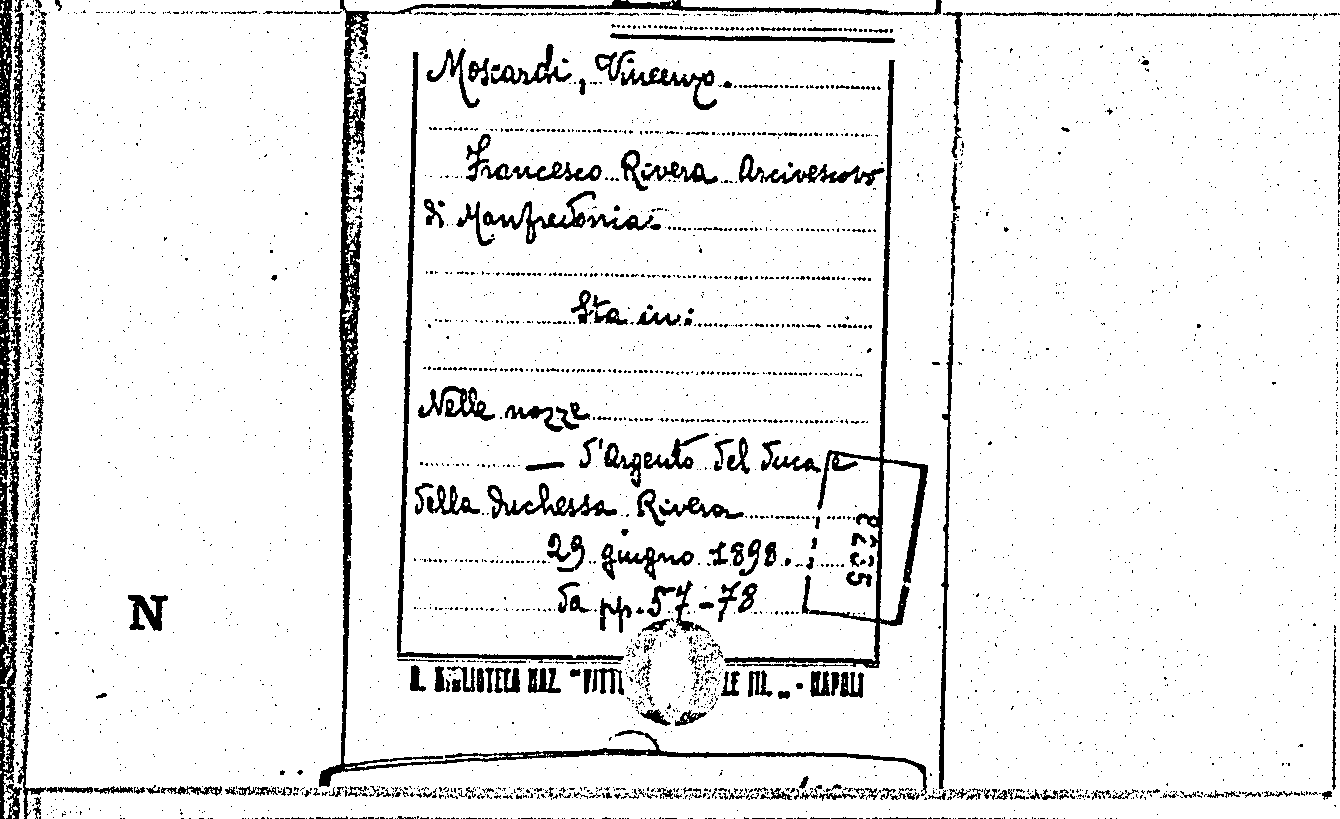 Moscardi, Vincenzo.
Francesco Rivera Arcivescovo
di Manfredonia.
Sta in:
Nelle nozze
— d'Argento del duca e
della duchessa Rivera
29 giugno 1898.
da pp. 57-78
N
R. BIBLIOTECA NAZ. "VITT LE III. „ - NAPOLI